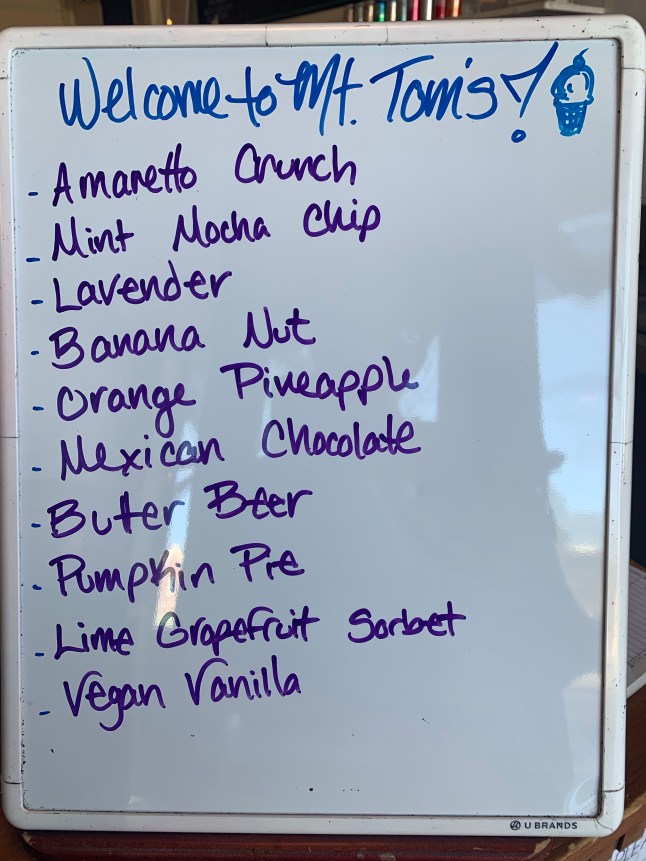 Welcome to Mt. Tom's!
- Amaretto Crunch
- Mint Mocha Chip
- Lavender
- Banana Nut
- Orange Pineapple
- Mexican Chocolate
- Butter Beer
- Pumpkin Pie
- Lime Grapefruit Sorbet
- Vegan Vanilla
U BRANDS